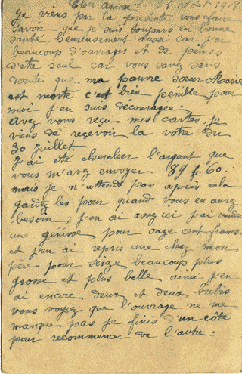 Cher ami
Je viens par la présente vous faire
savoir que je suis toujours en bonne
santé heureusement aussi car j'ai
beaucoup d'ouvrages et de peines
d'être seul car vous savez sans
doute que ma pauvre sœur
est morte c'est bien pénible pour
moi j'en suis découragé.
avez vous reçu mes cartes je
viens de recevoir la votre du
30 juillet
J'ai été chercher l'argent que
vous m'avez envoyer. 89 f. 60.
mais je n'attend pas après cela
gardez les pour quand vous en aurez
besoin j'en ai assez ici j'ai vendu
une génisse pour onze cent francs
et j'en ai repris une chez mon
père pour seize beaucoup plus
grosse et plus belle ainsi j'en
ai encore deux et deux
vous voyez que l'ouvrage ne me
manque pas je finis d'un côté
pour recommencer de l'autre.